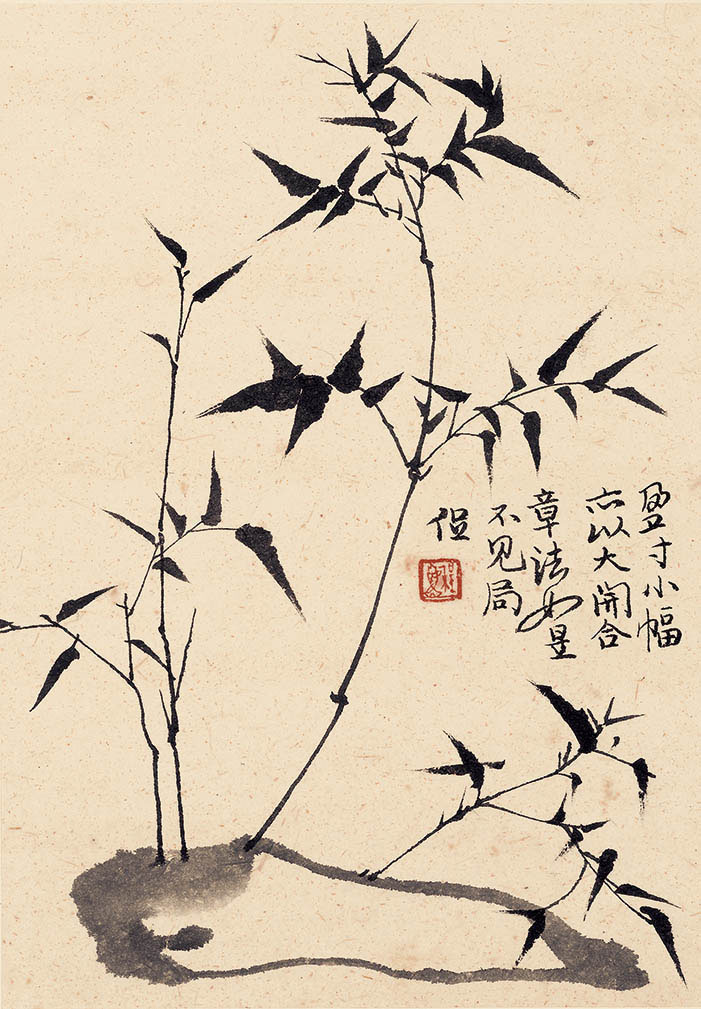 盈寸小幅
亦以大開合
章法如昰
不见局